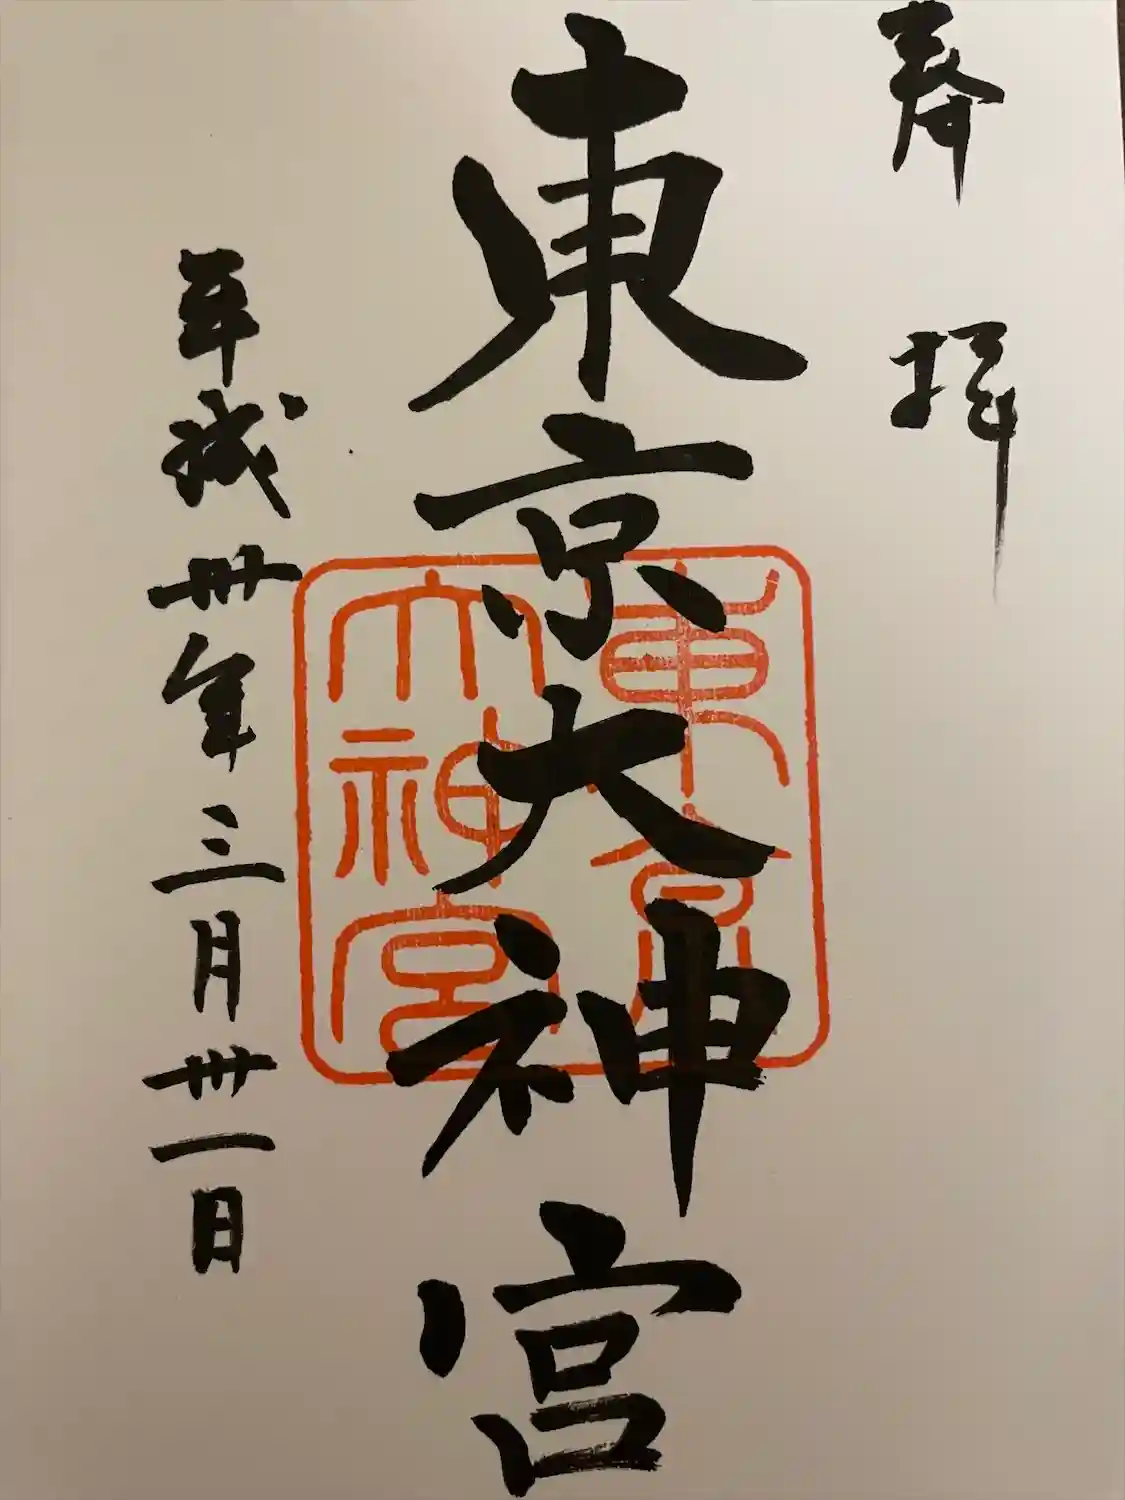 奉拝
東京大神宮
東京
大神宮
平成卅年三月卅一日